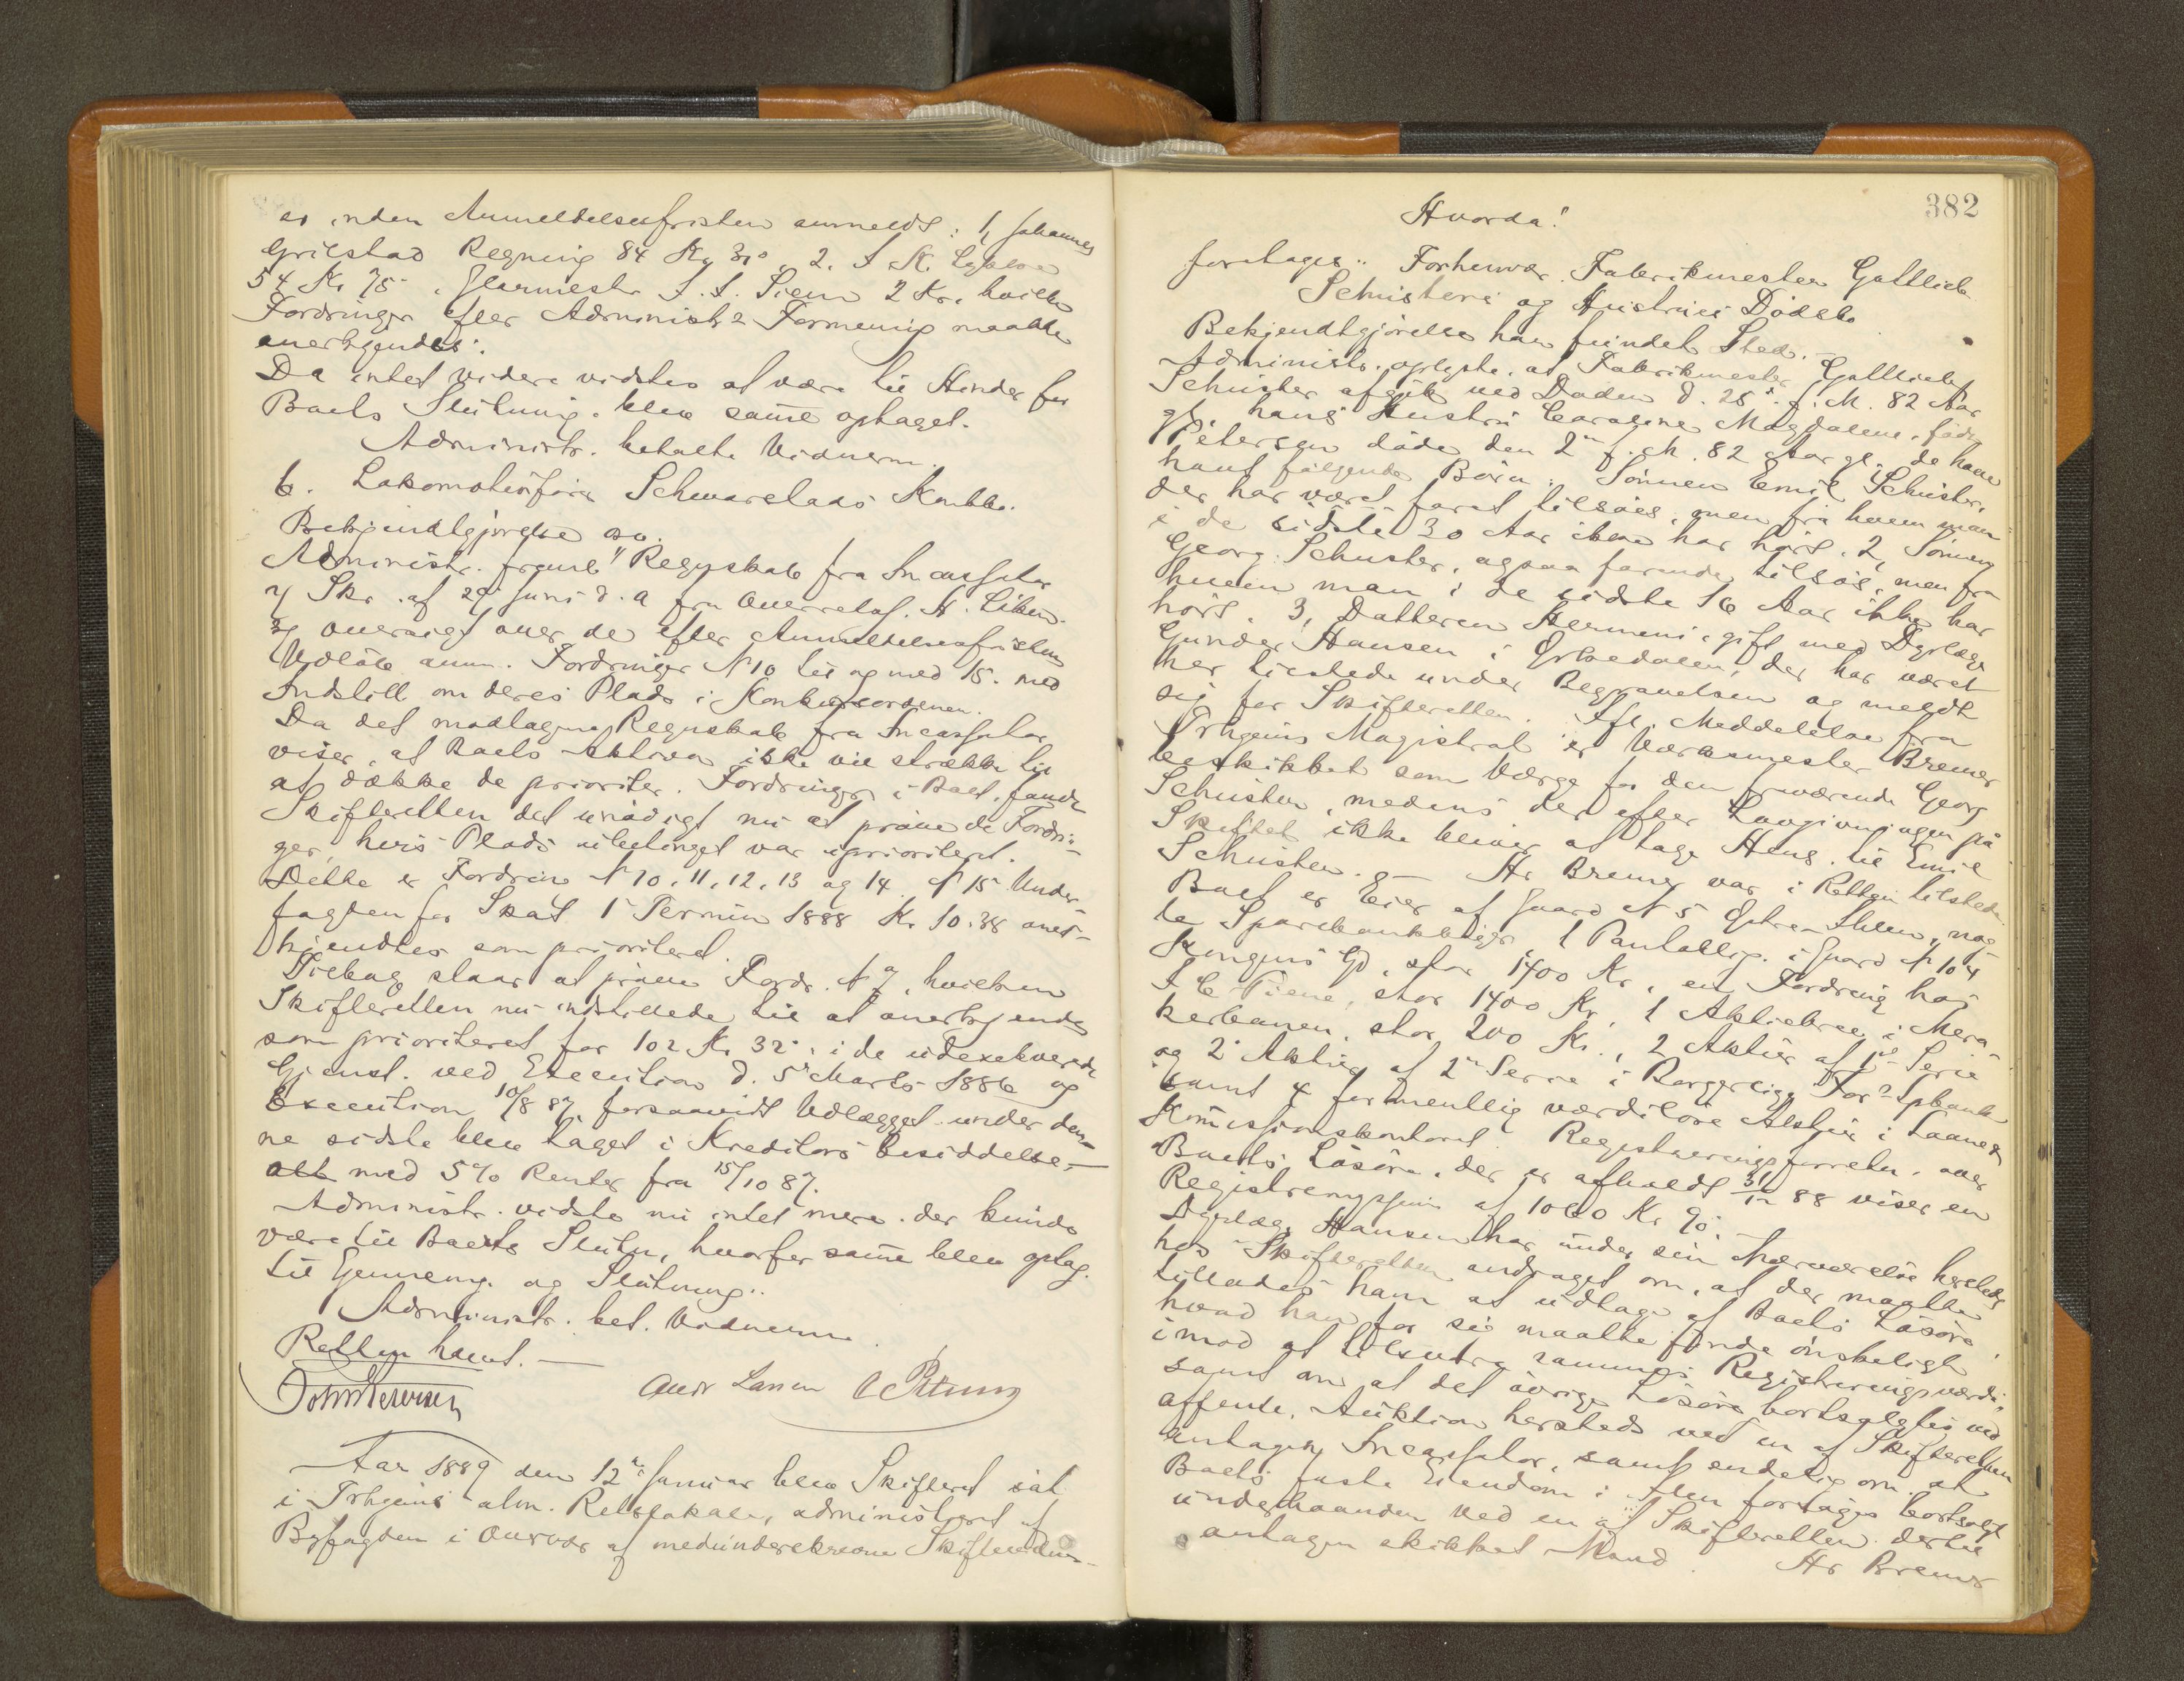 er inden Anmeldelsesfristen anmeldt: 1, Johannes
Grilstad Regning 84 Kr 30, 2. J. K.
54 Kr 75. Glarmester J. J. Siem 2 Kr. hvilke
Fordringer efter Administrs Formening maatte
anerkjendes.
Da intet videre vidstes at være til Hinder for
Boets Slutning, blev samme optaget.
Administr. betalte Vidnerne.
6. Lokomotivfører Schwarslaas Konkbo.
Bekjendtgjørelse
Administr. freml 1) Regnskab fra Incassator
2) Skr. af 29 Juni d. A fra Overretssf. H.
3) Oversigt over de efter Anmeldelsesfristens
Udløb anm. Fordringer N 10 til og med 15. med
Indstill om deres Plads i Konkursordenen.
Da det modtagne Regnskab fra Incassator
viser, at Boets Aktiva ikke vil strække til
at dække de prioriter. Fordringer i Boet, fandt
Skifteretten det unødigt nu at prøve de Fordrin-
ger, hvis Plads ubetinget var uprioritert.
Dette er Fordring N 10, 11, 12, 13 og 14. N 15 Under-
fogden for Skat 1 Termin 1888 Kr. 10.38 aner-
kjendtes som prioriteret.
Tilbag staar at prøve Fordr. N 7, hvilken
Skifteretten nu indstillede til at anerkjendes
som prioriteret for 102 Kr 32 i de udexekverede
Gjenst. ved Execution d. 5 Marts 1886 og
Execution 10/8 87, forsaavidt Udlægget under den-
ne sidste blev taget i Kreditors Besiddelse,
alt med 5% Renter fra 15/10 87.
Administr. vidste nu intet mere, der kunde
være til Boets Slutn, hvorfor samme blev optag.
til Gjennemg. og Slutning.
Administr. bet. Vidnerne
Retten hævet.
Andr Larsen
Aar 1889 den 12te Januar blev Skifteret sat
i Trhjems alm. Retslokale, administreret af
Byfogden i Overvær af medunderskrevne Skiftevidner.
382
Hvorda!
foretoges: Forhenvær. Fabrikmester Gottlieb
Schusters og Hustrues Dødsbo
Bekjendtgjørelse har fundet Sted.
Administr. oplyste, at Fabrikmester Gottlieb
Schuster afgik ved Døden d. 25 f. M. 82 Aar
gl, hans Hustru Caroline Magdalene, født
Petersen døde den 2den f. M. 82 Aar gl. de have
havt følgende Børn: Sønnen Emil Schuster,
der har været faret tilsøes, men fra hvem man
i de sidste 30 Aar ikke har hørt. 2, Sønnen
Georg Schuster, ogsaa farende tilsøs, men fra
hvem man i de sidste 16 Aar ikke har
hørt. 3, Datteren Hermine, gift med Dyrlæge
Gunder Hansen i Orkedalen, der har været
her tilstede under Begravelsen og meldt
sig for Skifteretten. Ifl. Meddelelse fra
Trhjems Magistrat er Værksmester Bremer
beskikket som Værge for den fraværende Georg
Schuster, medens der efter Lovgivningen på
Skiftet ikke bliver at tage Hens. til Emil
Schuster. Hr Bremer var i Retten tilstede.
Boet er Eier af Gaard N 5 Øvre Ihlen, nog-
le Sparebankbøger, 1 Pantobliga. i Gaard N 104
Kongens Gd, stor 1400 Kr, en Fordring hos
J. C. Piene, stor 1400 Kr, 1 Aktiebrev i Mera-
kerbanen, stor 200 Kr., 2 Aktier af 1ste Serie
og 2 Aktier af 2den Serie i Borgerlige For. Spbank
samt 4 formentlig værdiløse Aktier i Laane og
Kommissionskontoret. Registreringsforretn. over
Boets Løsøre, der er afholdt 31/12 88 viser en
Registreringssum af 1060 Kr 90.
Dyrlæge Hansen har under sin Nærværelse hersteds
hos Skifteretten andraget om, at der maatte
tillades ham at udtage af Boets Løsøre,
hvad han for sig maatte finde ønskeligt
imod at tilsvare sammes Registreringsværdi,
samt om at det øvrige Løsøre bortsælges ved
offentl. Auktion hersteds ved en af Skifteretten
antagen Incassator, samt endelig om, at
Boets faste Eiendom i Ilen forsøges bortsolgt
underhaanden ved en af Skifteretten dertil
antagen skikket Mand. Hr Bremer